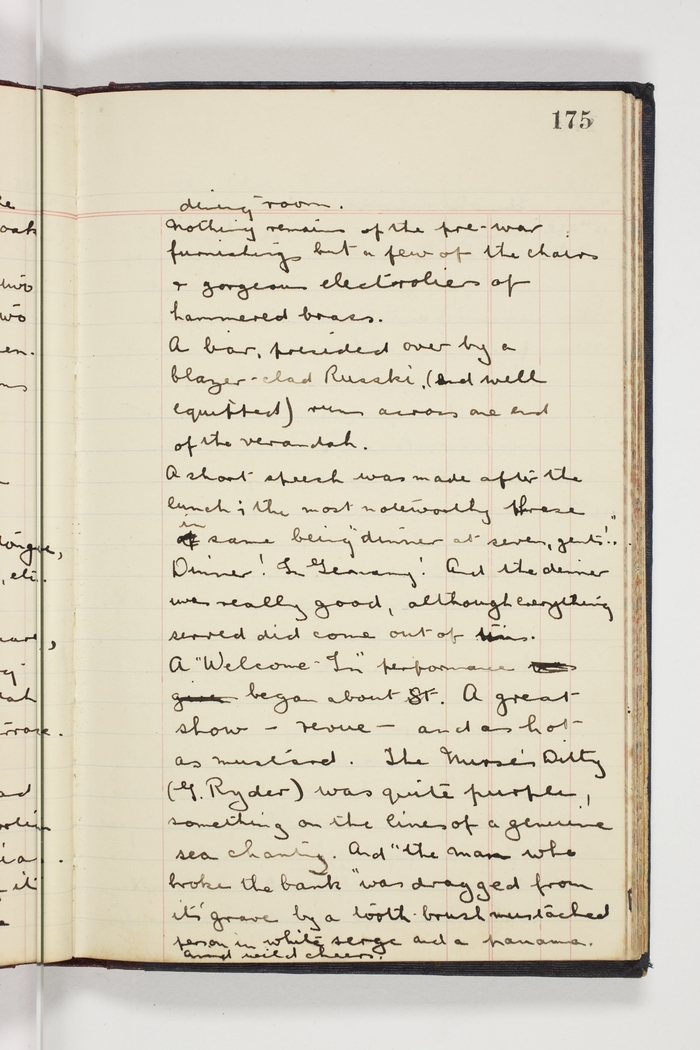 175
dining room.
nothing remains of the pre-war
furnishings but a few of the chairs
& gorgeous electroliers of
hammered brass.
A bar, presided over by a
blazer-clad Russki, (and well
equipped) runs across one end
of the verandah.
A short speech was made after the
lunch; the most noteworthy phrase
in
same being "dinner at seven, gents!".
Dinner! In Germany! And the dinner
was really good, although everything
served did come out of tins.
A "Welcome-In" performance
began about 8t. A great
show - revue - and as hot
as mustard. The Nurse's Ditty
(G. Ryder) was quite purple,
something on the lines of a genuine
sea chanty. And "the man who
broke the bank" was dragged from
its' grave by a tooth-brush mustached
person in white serge and a panama.
amid wild cheers.
oak
two
two
en.
tongue,
etc.
it